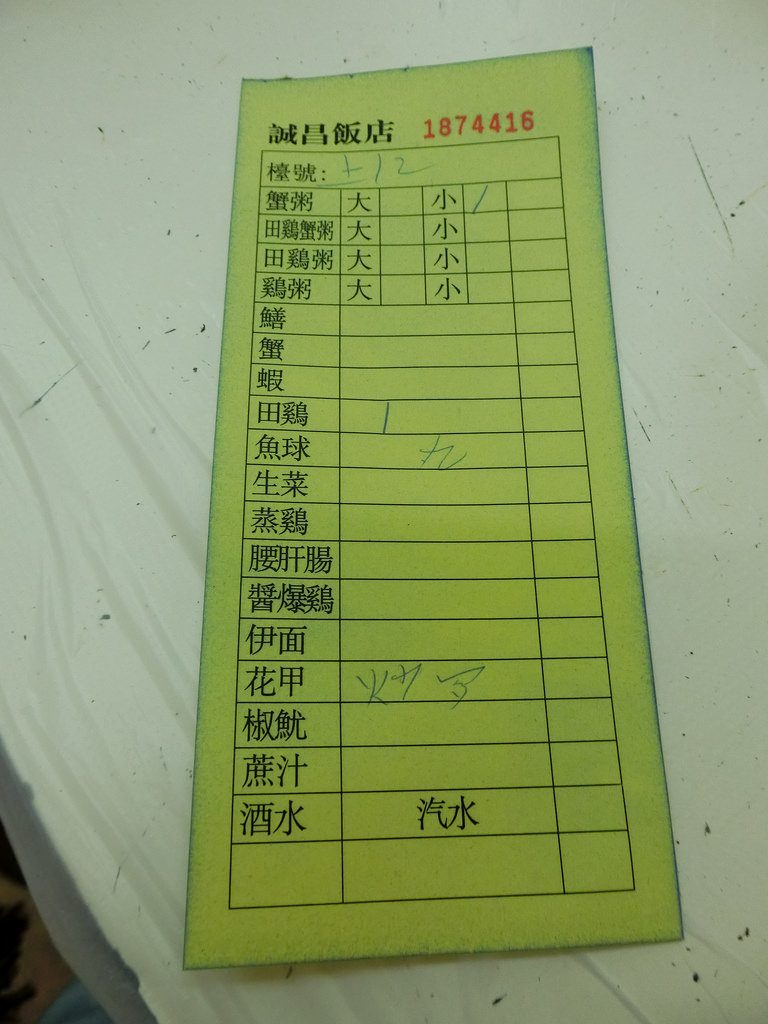 誠昌飯店 1874416
檯號: 土12
蟹粥 大 小 1
田鷄蟹粥 大 小
田鷄粥 大 小
鷄粥 大 小
鱔
蟹
蝦
田鷄 1
魚球 九
生菜
蒸鷄
腰肝腸
醬爆鷄
伊面
花甲
椒魷
蔗汁
酒水 汽水